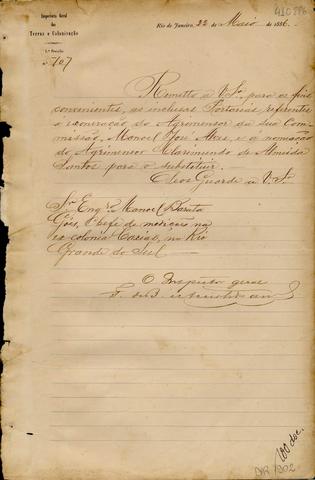 Inspectoria Geral
das
Terras e Colonisação
Rio de Janeiro, 22 de Maio de 1886.
Nº 707
Remetto a V. Sª para os fins
convenientes, as inclusas Portarias referentes
á exoneração do Agrimensor da sua Com-
missão, Manoel José Alves, e á nomeação
do Agrimensor Clarimundo de Almeida
Santos para o substituir.
Deos Guarde a V. Sª
Sr. Engº Manoel Barata
Góes, Chefe da medição na
ex colonia Caxias, no Rio
Grande do Sul
O Inspector geral
F. de B.
100 doc.